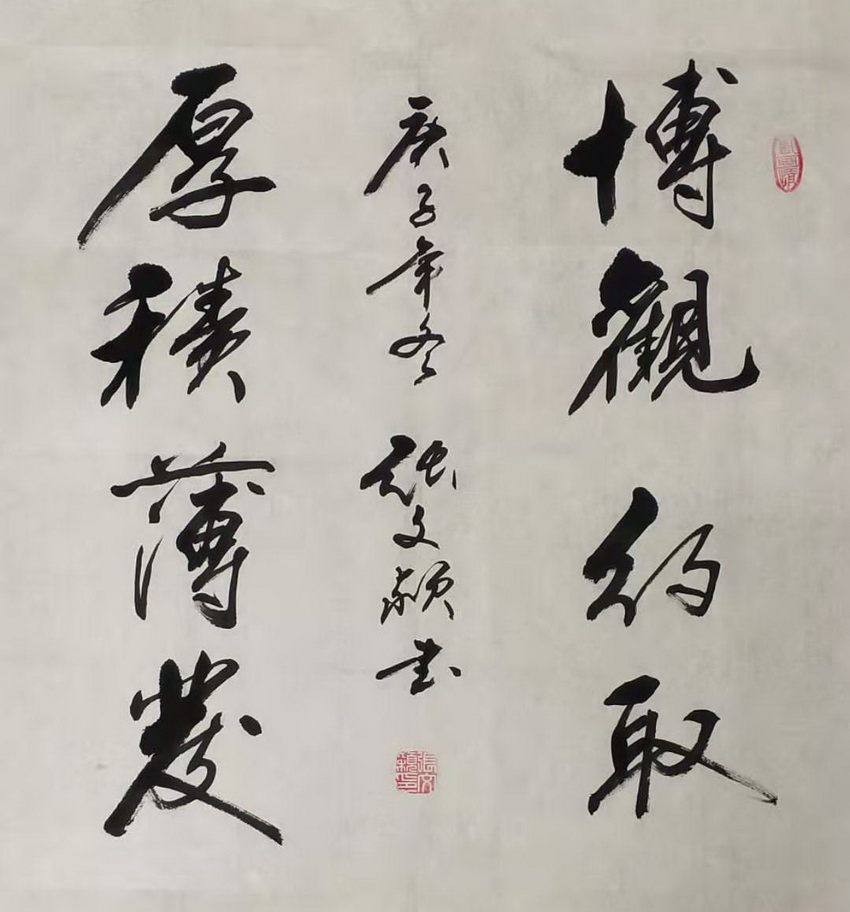 博觀約取
厚積薄發
庚子年冬 張文穎書
張文穎印